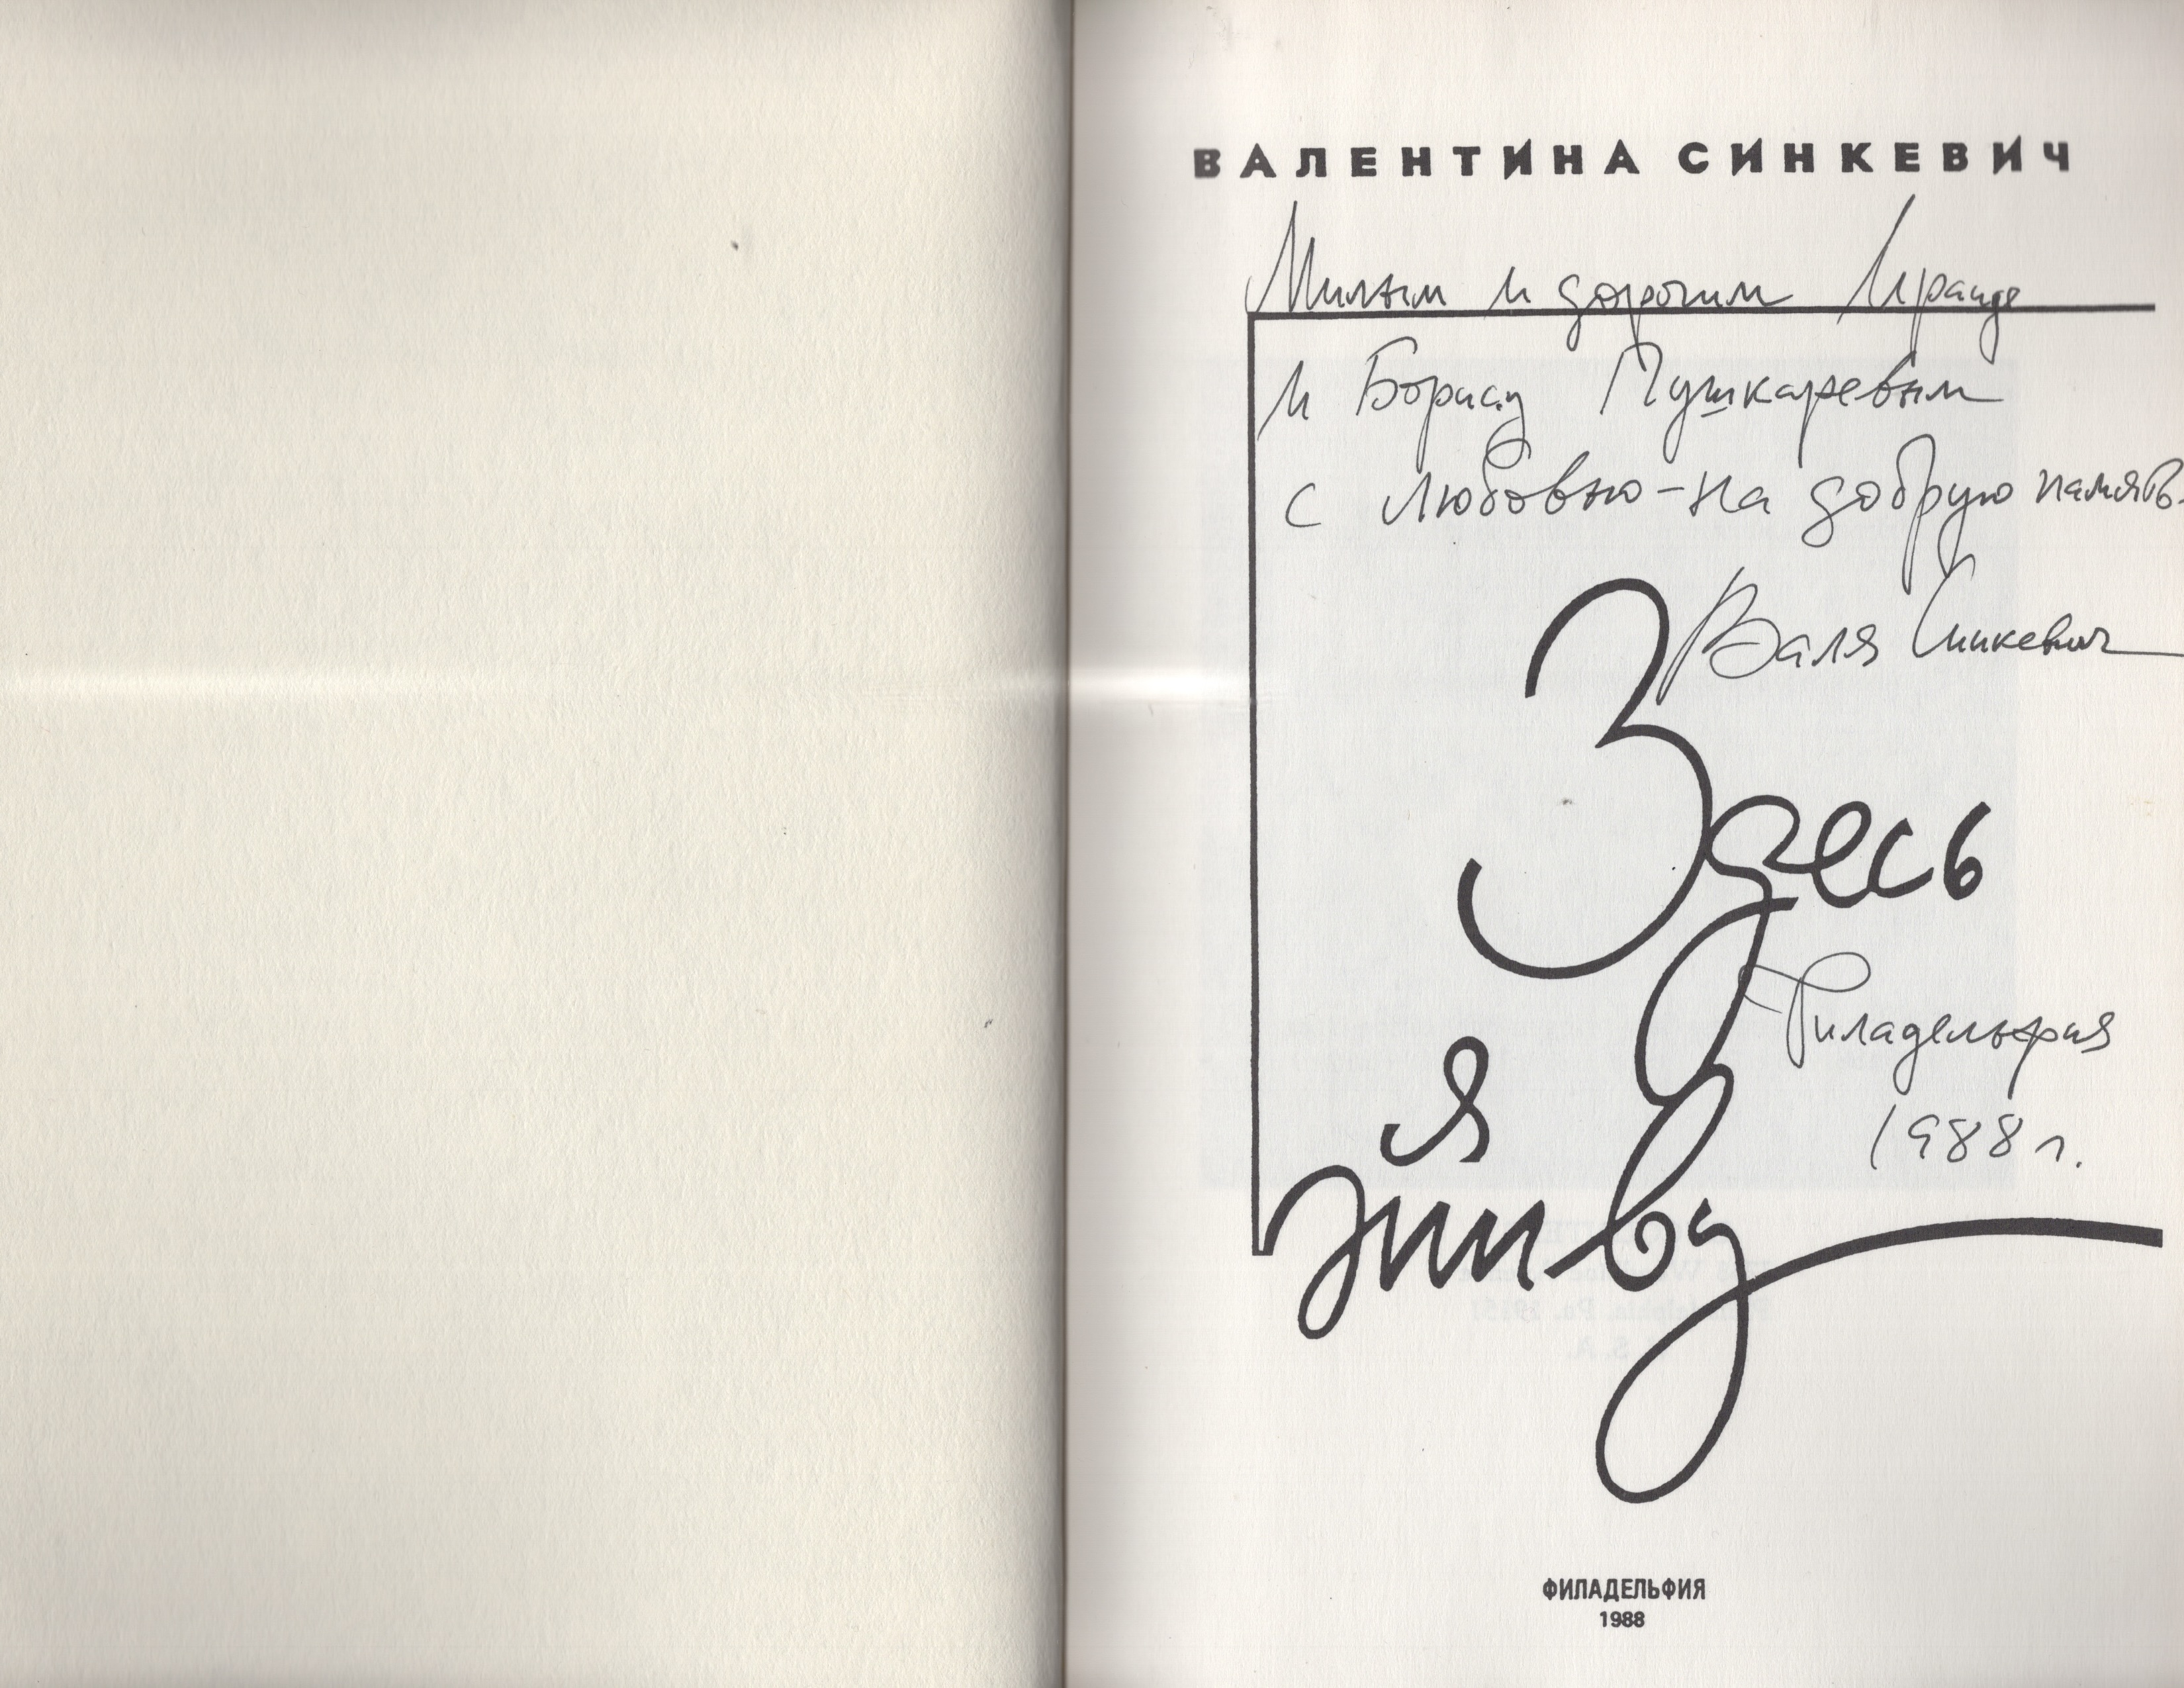 ВАЛЕНТИНА СИНКЕВИЧ
Милым и дорогим Ираиде
и Борису Пушкаревым
с любовью - на добрую память.
Валя Синкевич
Здесь
я
живу
Филадельфия
1988 г.
ФИЛАДЕЛЬФИЯ
1988